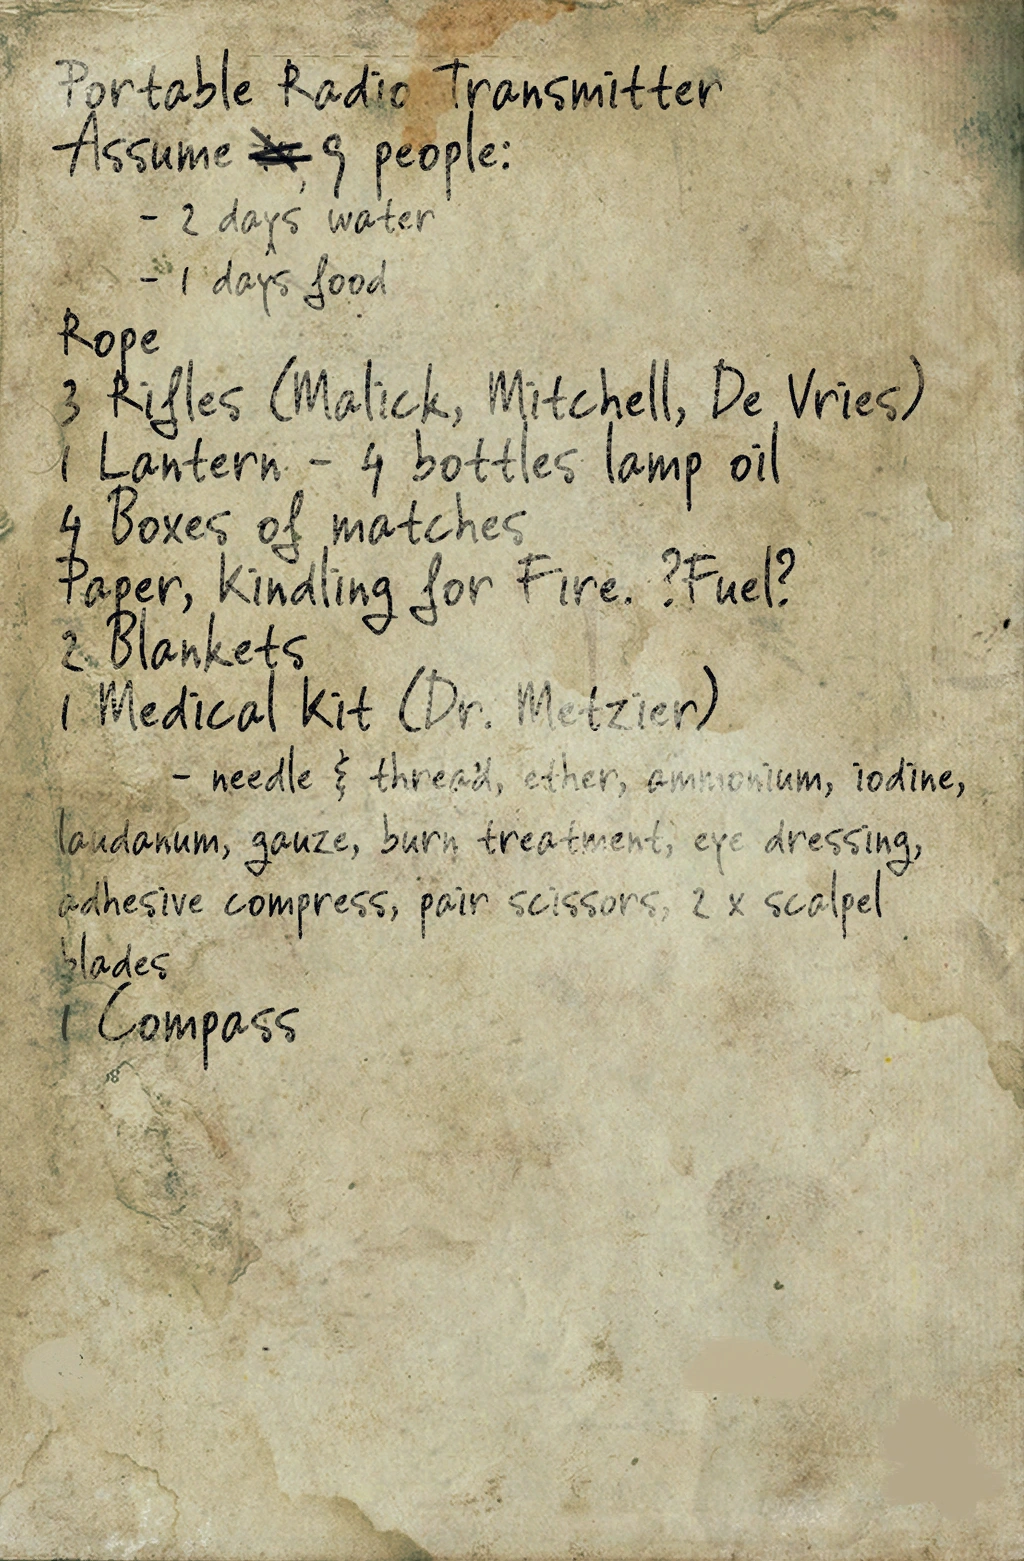 Portable Radio Transmitter
Assume 9 people:
- 2 days water
- 1 days food
Rope
3 Rifles (Malick, Mitchell, De Vries)
1 Lantern - 4 bottles lamp oil
4 Boxes of matches
Paper, Kindling for Fire. ?Fuel?
2 Blankets
1 Medical Kit (Dr. Metzier)
- needle & thread, ether, ammonium, iodine,
laudanum, gauze, burn treatment, eye dressing,
adhesive compress, pair scissors, 2 x scalpel
blades
1 Compass